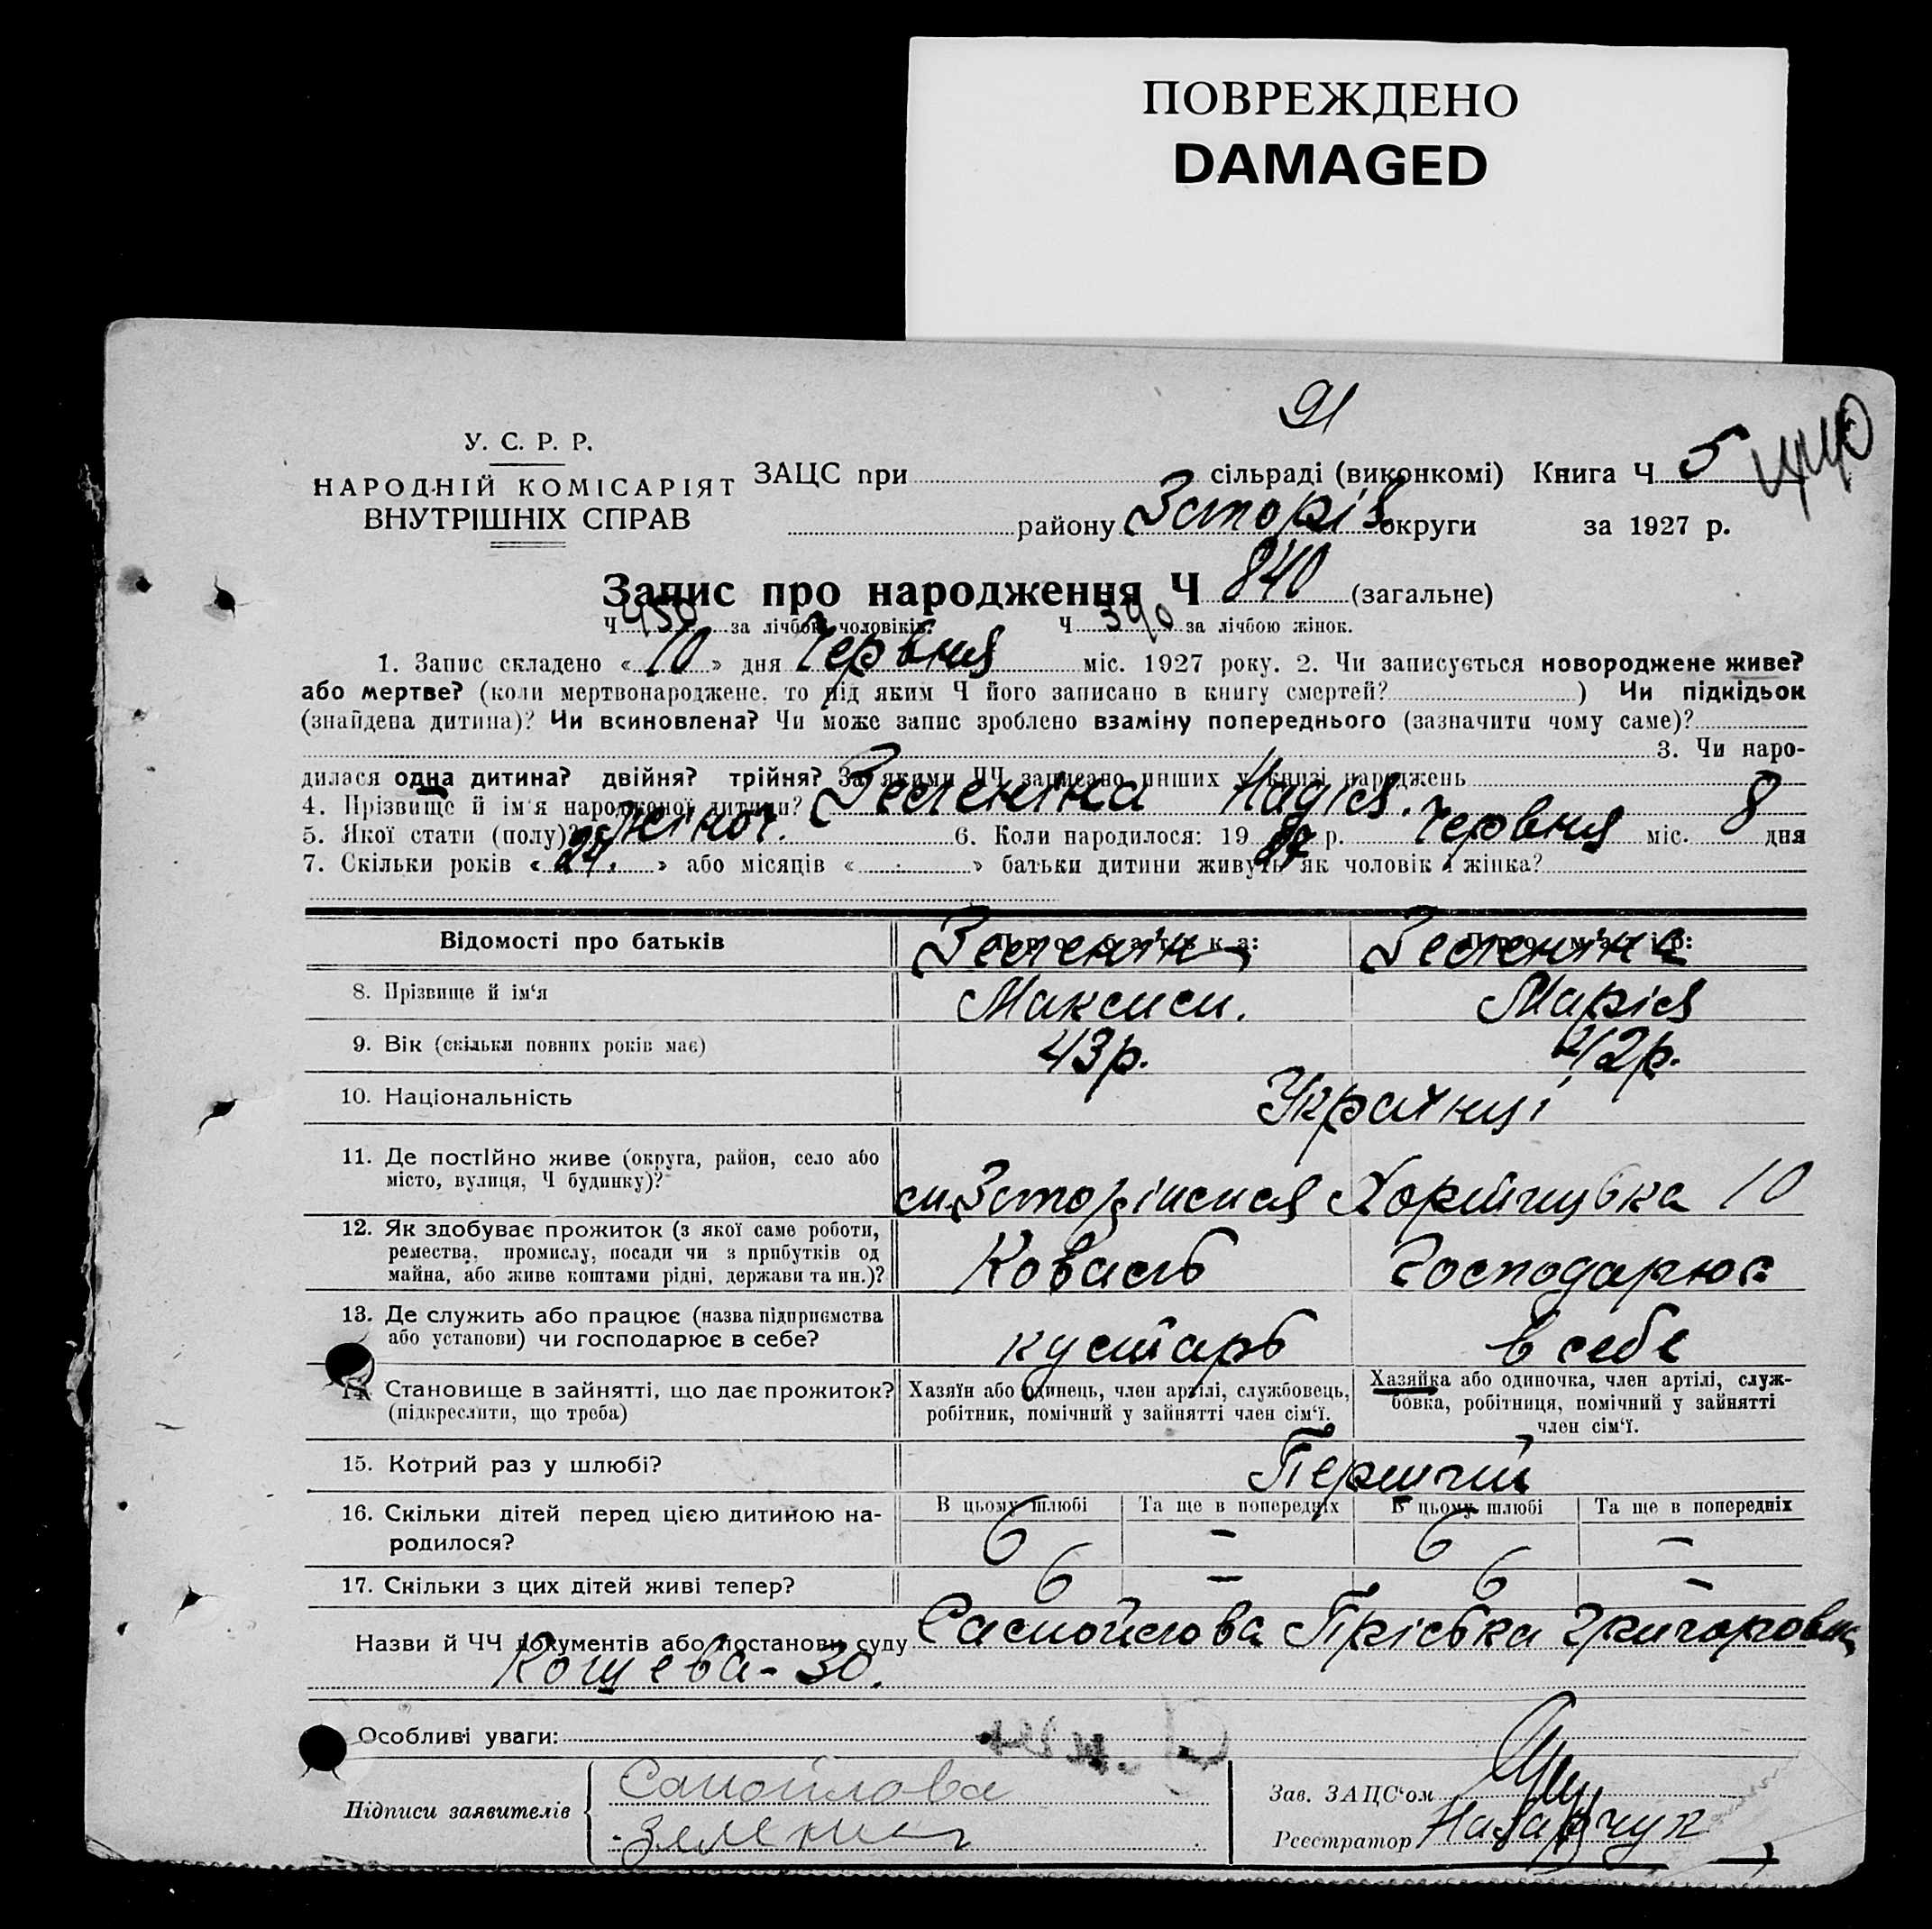 ПОВРЕЖДЕНО
DAMAGED
91
У. С. Р. Р.
НАРОДНІЙ КОМІСАРІЯТ
ВНУТРІШНІХ СПРАВ
ЗАЦС при сільраді (виконкомі) Книга Ч 5
району Запоріз. округи за 1927 р.
Запис про народження Ч 840 (загальне)
Ч 450 за лічбою чоловіків. Ч 390 за лічбою жінок.
1. Запис складено « 10 » дня Червня міс. 1927 року. 2. Чи записується новороджене живе?
або мертве? (коли мертвонароджене, то під яким Ч його записано в книгу смертей? ) Чи підкідьок
(знайдена дитина)? Чи всиновлена? Чи може запис зроблено взаміну попереднього (зазначити чому саме)?
3. Чи наро-
дилася одна дитина? двійня? трійня? За якими ЧЧ записано инших у книзі народжень
4. Прізвище й ім'я народженої дитини? Зеленіна Надія.
5. Якої стати (полу)? Жіноч. 6. Коли народилося: 19 27 р. Червня міс. 8 дня
7. Скільки років « 24. » або місяців « » батьки дитини живуть як чоловік і жінка?
Відомості про батьків Про батька: Про матір:
8. Прізвище й ім'я Зеленін Максим. Зеленіна Марія
9. Вік (скільки повних років має) 43р. 42р.
10. Національність Українці
11. Де постійно живе (округа, район, село або
місто, вулиця, Ч будинку)? 10
12. Як здобуває прожиток (з якої саме роботи,
ремества, промислу, посади чи з прибутків од
майна, або живе коштами рідні, держави та ин.)? Коваль Господарює
13. Де служить або працює (назва підприємства
або установи) чи господарює в себе? кустарь в себе
14. Становище в зайнятті, що дає прожиток?
(підкреслити, що треба)
Хазяїн або одинець, член артілі, службовець,
робітник, помічний у зайнятті член сім'ї.
Хазяйка або одиночка, член артілі, служ-
бовка, робітниця, помічний у зайнятті
член сім'ї.
15. Котрий раз у шлюбі? Перший
16. Скільки дітей перед цією дитиною на-
родилося?
В цьому шлюбі Та ще в попередніх В цьому шлюбі Та ще в попередніх
6 – 6 –
17. Скільки з цих дітей живі тепер? 6 – 6 –
Назви й ЧЧ документів або постанови суду Самойлова Пріська Григоровна
Кощева - 30.
Особливі уваги:
Підписи заявителів Самойлова
Зеленин
Зав. ЗАЦС'ом
Реєстратор Назарчук